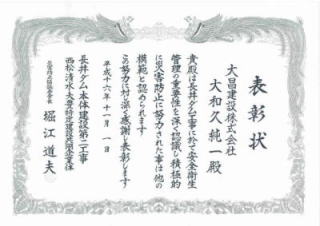 表彰状
大昌建設株式会社
大和久純一殿
貴殿は長井ダム工事に於て安全衛生
管理の重要性を深く認識し積極的
に災害防止に努力された事は他の
模範と認められます
この努力に対し深く感謝し表彰します
平成十六年十一月一日
長井ダム本体建設第一工事
堀江道夫